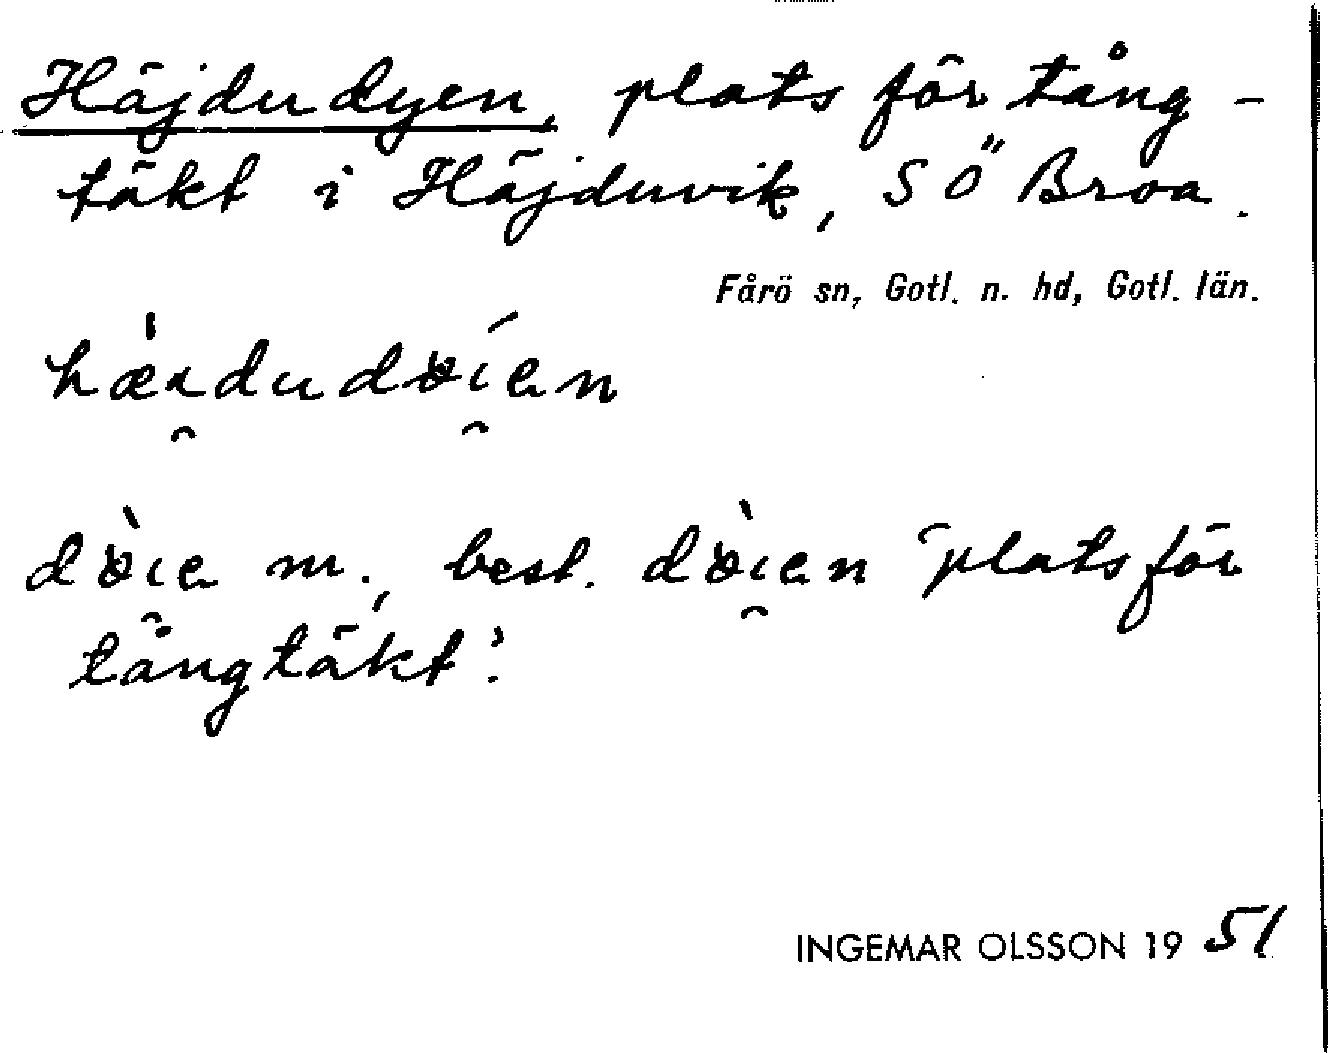 Häjdudyen, plats för tång-
täkt i Häjduvik, SÖ Broa.
Fårö sn, Gotl. n. hd, Gotl. län.
m., best. "plats för
tångtäkt".
INGEMAR OLSSON 19 51